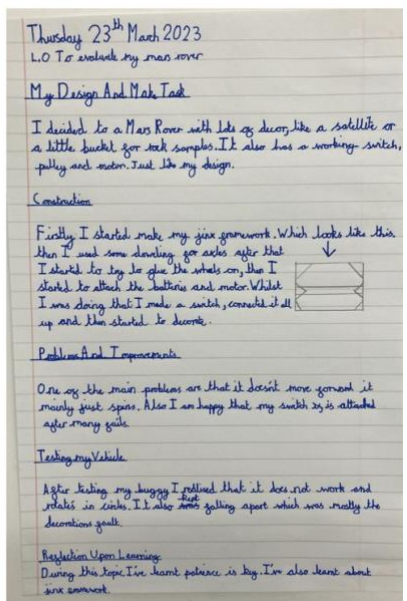 Thursday 23th March 2023
L.O To evaluate my mars rover
My Design And Make Task
I decided to a Mars Rover with lots of decor, like a satellite or
a little bucket for rock samples. It also has a working switch,
pulley and motor. Just like my design.
Construction
Firstly I started make my jinx framework. Which looks like this.
then I used some dowling for axles after that
I started to try to glue the wheels on, then I
started to attach the batteries and motor. Whilst
I was doing that I made a switch, connected it all
up and then started to decorate.
Problems And Improvements
One of the main problems are that it doesn't move forward it
mainly just spins. Also I am happy that my switch is attached
after many fails
Testing my Vehicle
After testing my buggy I realised that it does not work and
rotates in circles. It also kept falling apart which was mostly the
decorations fault
Reflection Upon Learning
During this topic I've learnt patience is key. I've also learnt about
jinx